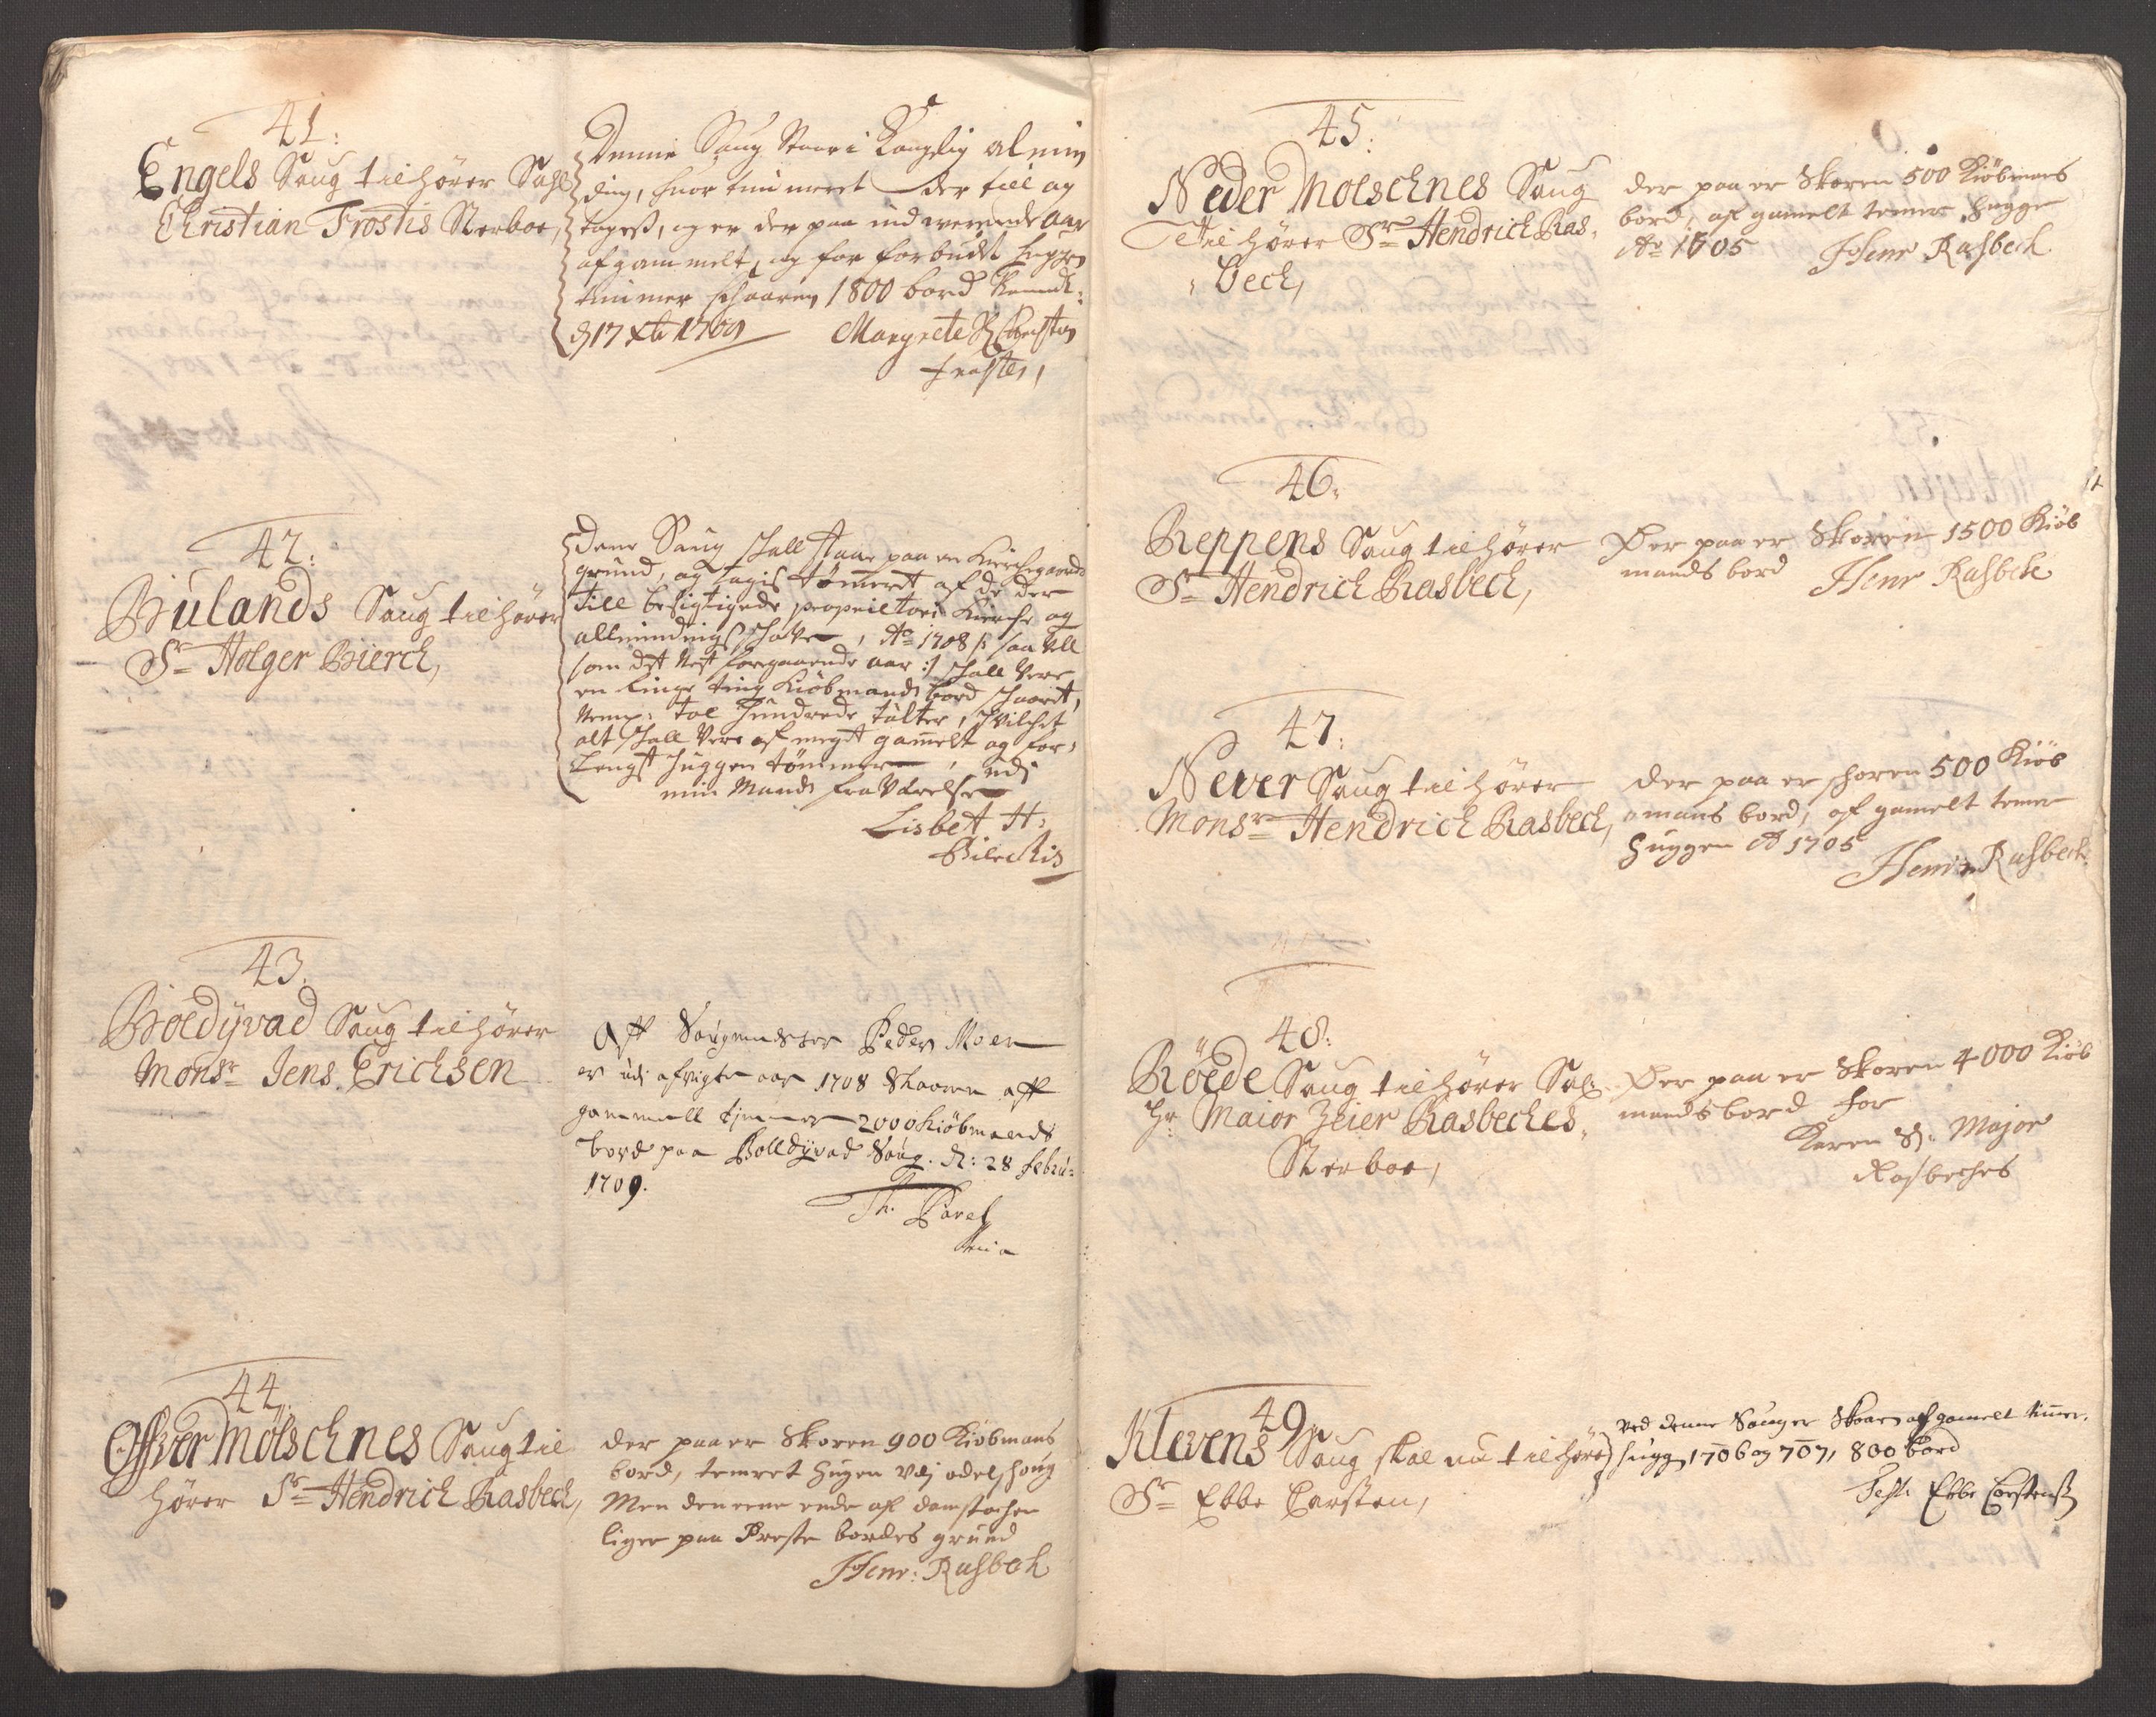 41:
Engels Saug tilhörer Sahl
Christian Frostis Sterboe,
Denne Saug Staar i Kongelig almin
ding, huor timmeret der till og
tages, og er der paa indwerende aar
af gammelt, og for forbudet huggen
timmer schaaren 1800 bord
d 17 xbr 1709 Margrete Sl Christen
Frostes,
42:
Bulands Saug tilhörer
Sr Holger Bierch,
Denne Saug schall staae paa en Kierchegaards
grund, og tagis tömmeret af de der
till besigtigede proprietori Kierche og
allmindings schове, Ao 1708 /: saa vell
som det Nest foregaaende aar :/ schall Vere
en Ringe ting Kiöbmands bord schaaret,
Nemp: tol hundrede tölter, huilchet
alt schall Vere af megit gammelt og for-
lengst huggen tömmer, udj
min Mands fraVærelse
Lisbet H:
Bilerchis
43.
Boldÿvad Saug tilhörer
Monsr Jens Erichsen
Aff Saugmester Peder Moen
er udi afvigte aar 1708 Skaaren aff
gammell timmer 2000 Kiöbmands
bord paa Bolldÿvad Saug. d: 28 febru:
1709.
Th. Parel
44.
Offver Mölschnes Saug til
hörer Sr Hendrich Rasbech,
der paa er Skoren 900 Kiöbmans
bord, temret hugen vdj odelschoug
Men den eene ende af damstochen
liger paa Preste bordes grund
Henr: Rasbech
45.
Neder Molschnes Saug
Tilhörer Sr Hendrich Ras-
bech,
der paa er Skoren 500 Kiöbmans
bord, af gamelt temer hugge
Ao 1705 Henr Rasbech
46.
Reppens Saug tilhörer
Sr Hendrich Rasbech,
Der paa er Skoren 1500 Kiöb
mands bord Henr Rasbech
47.
Never Saug tilhörer
Monsr Hendrich Rasbech,
der paa er schoren 500 Kiöb
mans bord, af gamelt temer
huggen A 1705
Henr Rasbech
48.
Röede Saug tilhörer Sal:
Hr Maior Zeier Rasbeches
Sterboe,
Der paa er Skoren 4000 Kiöb
mands bord for
Karen Sl: Major
Rasbeches
49.
Klevens Saug skal nu tilhöre
Sr Ebbe Carsten,
Ved denne Saug er Skaaren aff gamelt timer,
hugg 1706 og 707, 800 bord
Test: Ebbe Carstensen